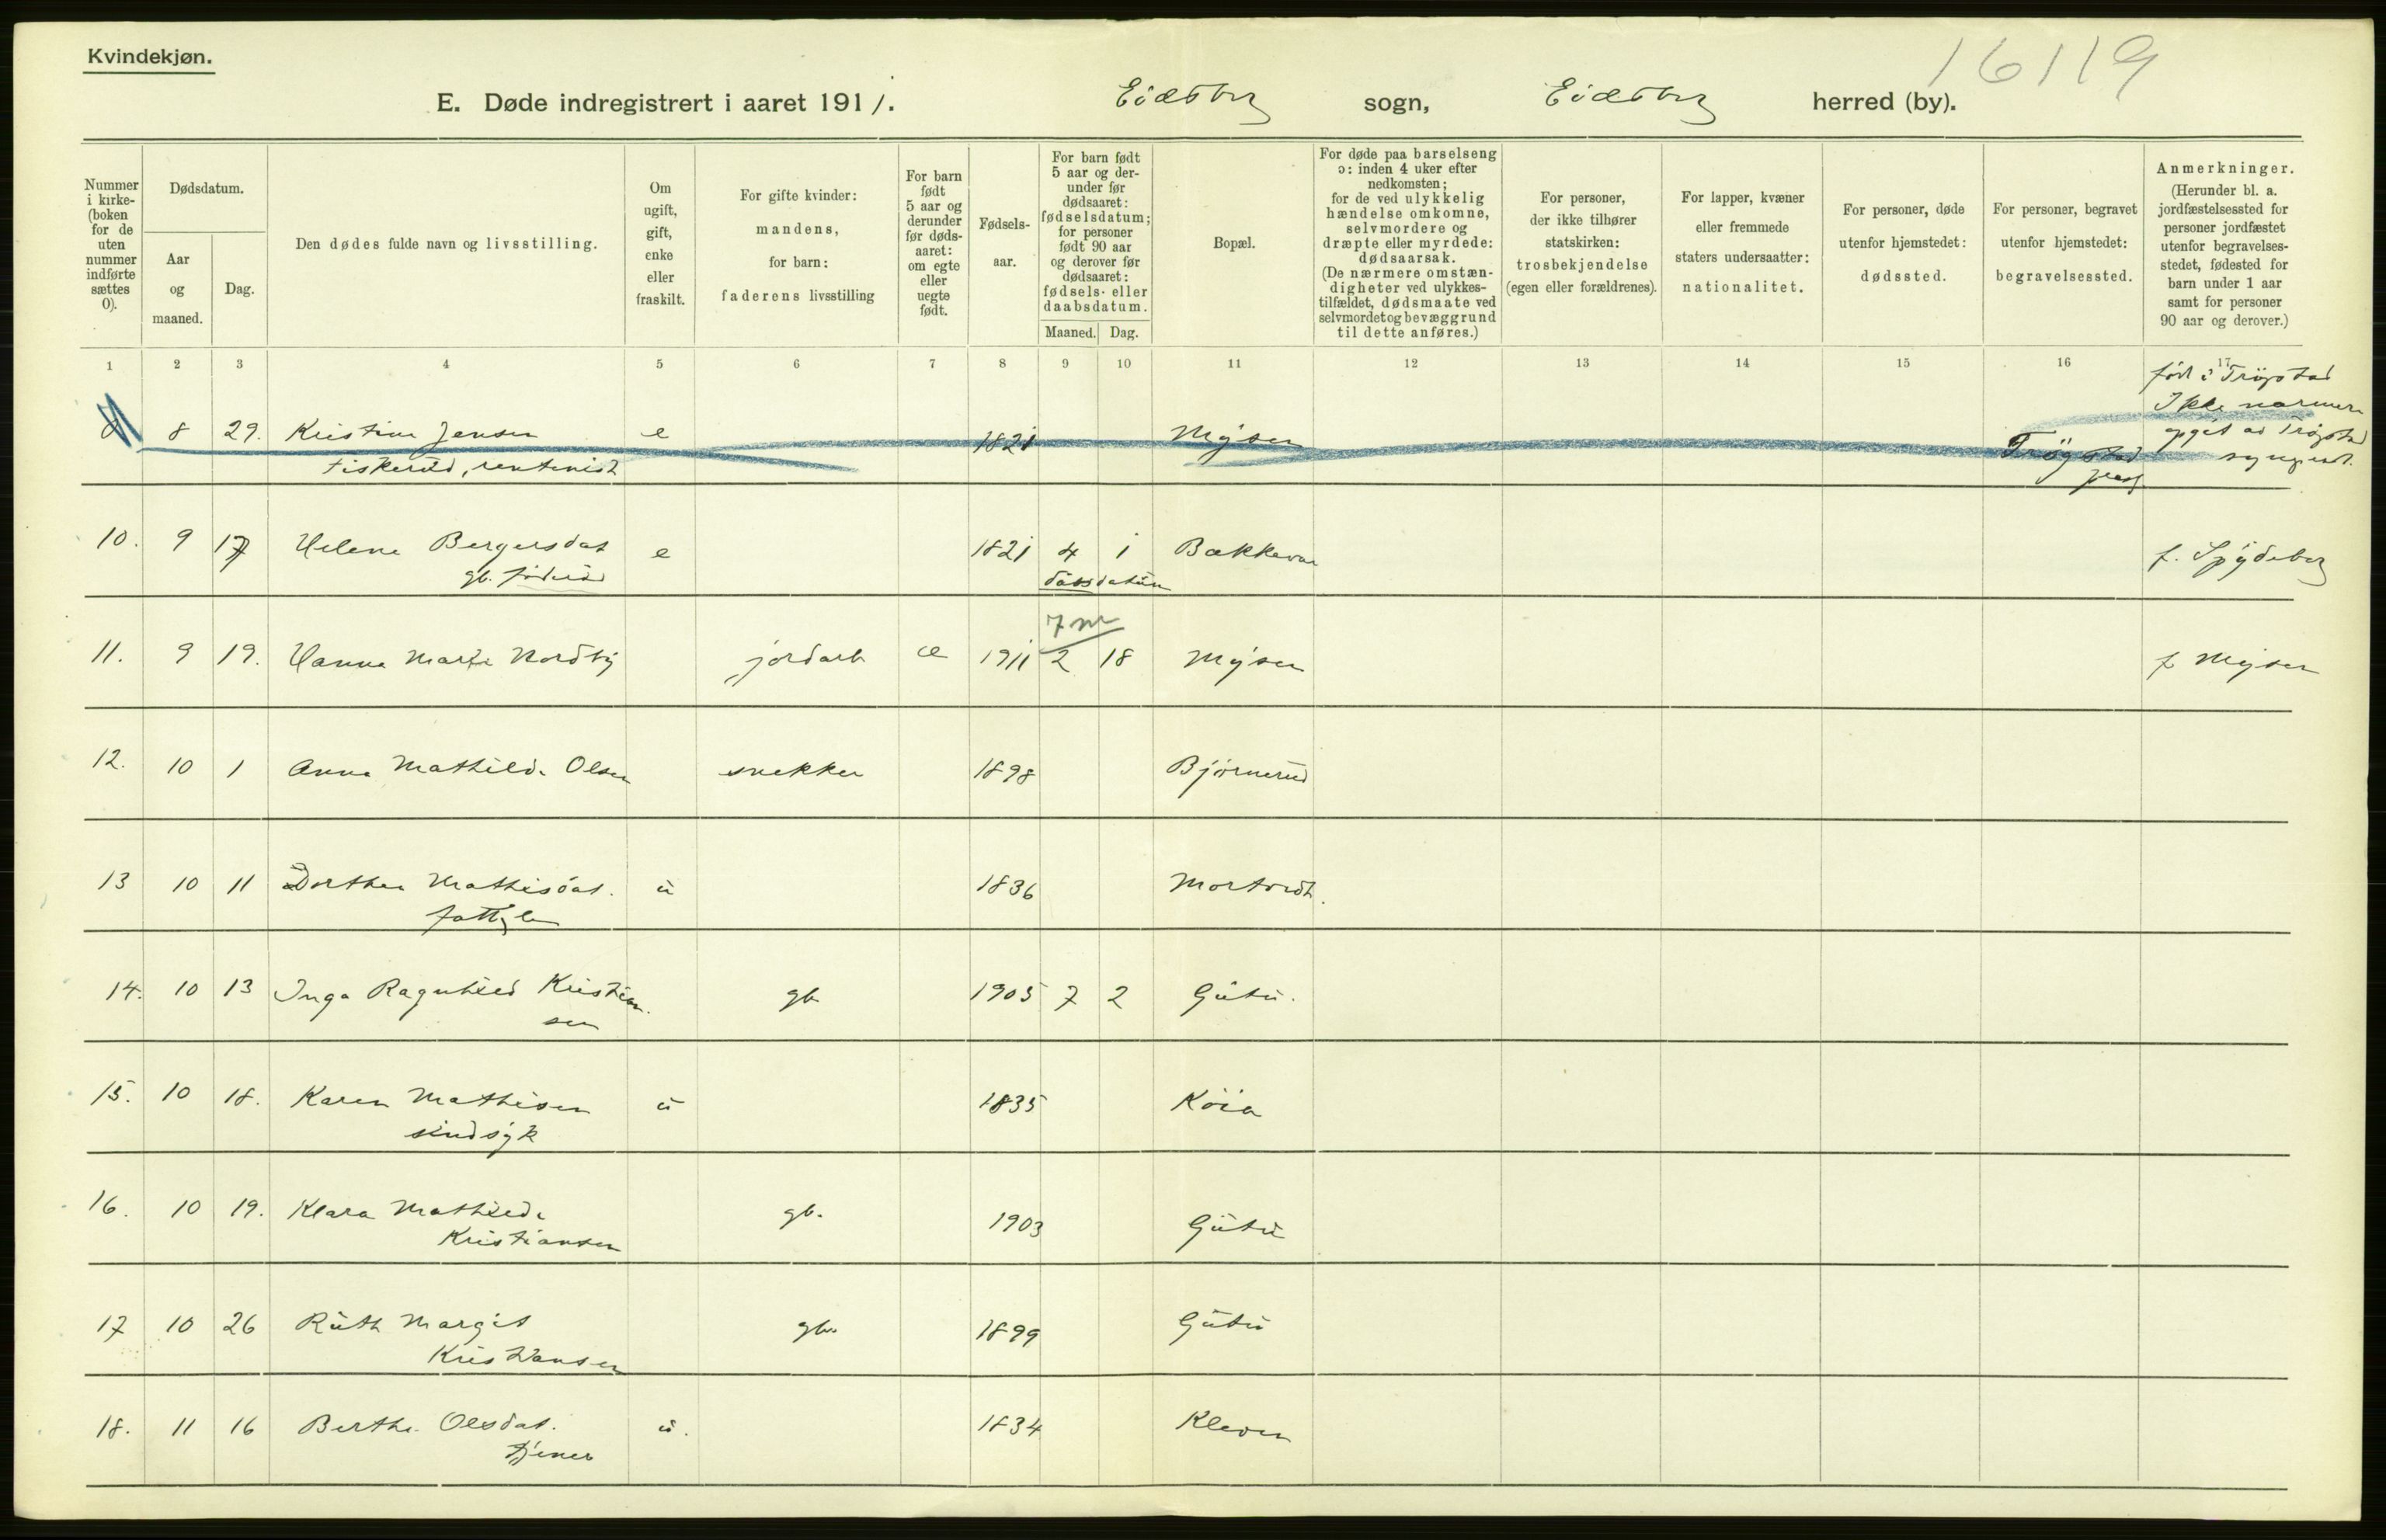 Kvindekjøn.
16119
E. Døde indregistrert i aaret 1911. Eidsberg sogn, Eidsberg herred (by).
Nummer i kirke- (boken for de uten nummer indførte sættes 0).
Dødsdatum.
Aar og maaned.
Dag.
Den dødes fulde navn og livsstilling.
Om ugift, gift, enke eller fraskilt.
For gifte kvinder: mandens, for barn: faderens livsstilling
For barn født 5 aar og derunder før døds- aaret: om egte eller uegte født.
Fødsels- aar.
For barn født 5 aar og der- under før dødsaaret: fødselsdatum; for personer født 90 aar og derover før dødsaaret: fødsels- eller daabsdatum.
Maaned. Dag.
Bopæl.
For døde paa barselseng ɔ: inden 4 uker efter nedkomsten; for de ved ulykkelig hændelse omkomne, selvmordere og dræpte eller myrdede: dødsaarsak. (De nærmere omstæn- digheter ved ulykkes- tilfældet, dødsmaate ved selvmordet og bevæggrund til dette anføres.)
For personer, der ikke tilhører statskirken: trosbekjendelse (egen eller forældrenes).
For lapper, kvæner eller fremmede staters undersaatter: nationalitet.
For personer, døde utenfor hjemstedet: dødssted.
For personer, begravet utenfor hjemstedet: begravelsessted.
Anmerkninger. (Herunder bl. a. jordfæstelsessted for personer jordfæstet utenfor begravelses- stedet, fødested for barn under 1 aar samt for personer 90 aar og derover.)
1 2 3 4 5 6 7 8 9 10 11 12 13 14 15 16 17
født i Trøgstad
Ikke nærmere
opgit av Trøgstad
8 29. Kristine Jensen e 1821 Mysen Trøgstad
rentenist
10. 9 17 Helene Bergersdat e 1821 4 1 Bækkevar f. Spydeberg
gb. føderåd dåbsdatum
7 m
11. 9 19. Hanna Marie Nordby jordarb e 1911 2 18 Mysen f. Mysen
12. 10 1 Anna Mathilde Olsen snekker 1898 Bjørnerud
13 10 11 Dorthea Mathisdat. u 1836
fattigl
14. 10 13 Inga Ragnhild Kristian- gb 1905 7 2 Gutu.
sen
15. 10 18. Karen Mathisen u 1835 Køia
sindsyk
16. 10 19. Klara Mathilde gb. 1903 Gutu
Kristiansen
17 10 26 Ruth Margit gb. 1899 Gutu
Kristiansen
18. 11 16 Berthe Olsdat. u. 1834 Kleven
tjener